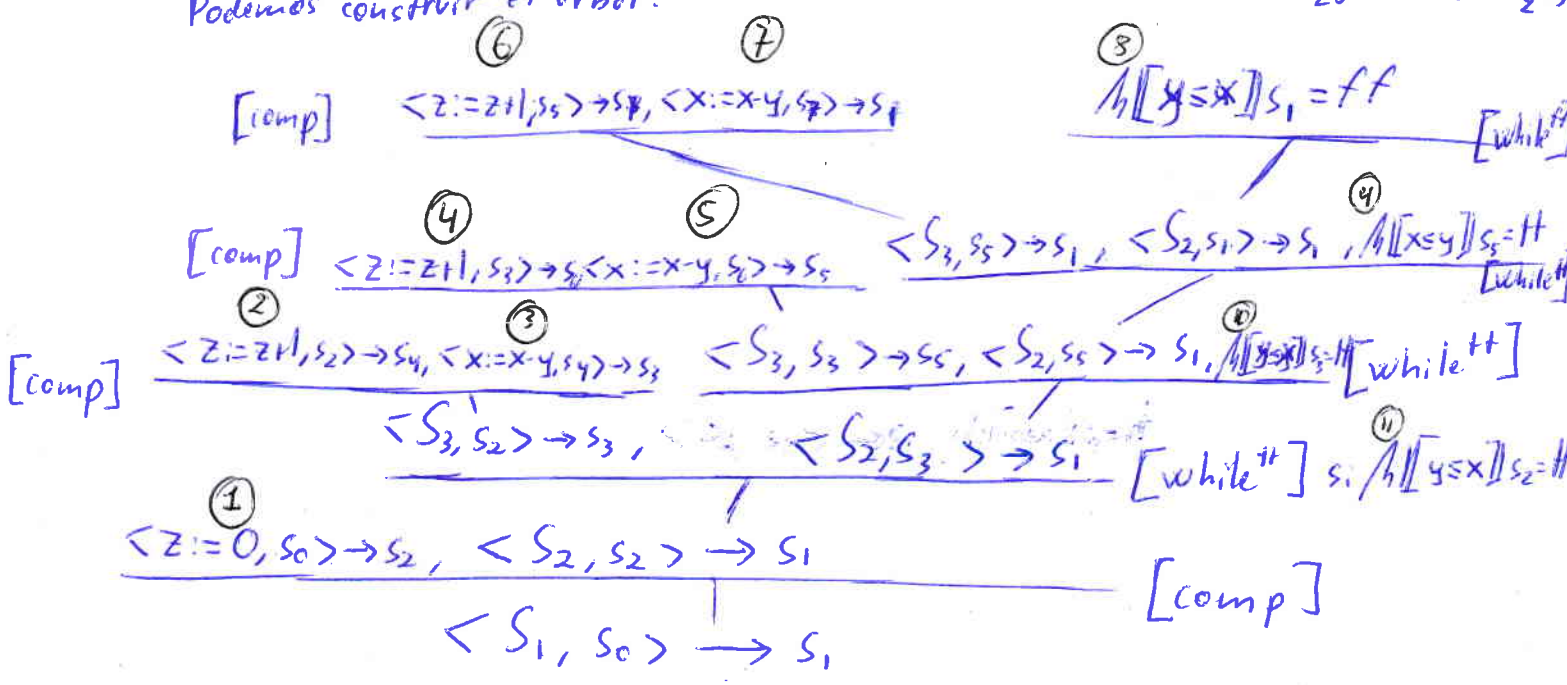 Podemos construir el árbol:
⑥ ⑦ ⑧
[comp] <z:=z+1,s₅>→s₇, <x:=x-y,s₇>→s₁ 𝓑⟦y≤x⟧s₁=ff
[while
④ ⑤ ⑨
[comp] <z:=z+1,s₃>→s₆ <x:=x-y,s₆>→s₅ <S₃,s₅>→s₁, <S₂,s₁>→s₁, 𝓑⟦x≤y⟧s₅=tt
[while
② ③ ⑩
[comp] <z:=z+1,s₂>→s₄, <x:=x-y,s₄>→s₃ <S₃,s₃>→s₅, <S₂,s₅>→s₁, 𝓑⟦y≤x⟧s₃=tt [while^tt]
⑪
<S₃,s₂>→s₃, <S₂,s₃>→s₁ [while^tt] si 𝓑⟦y≤x⟧s₂=tt
①
<z:=0,s₀>→s₂, <S₂,s₂>→s₁
[comp]
<S₁,s₀>→s₁